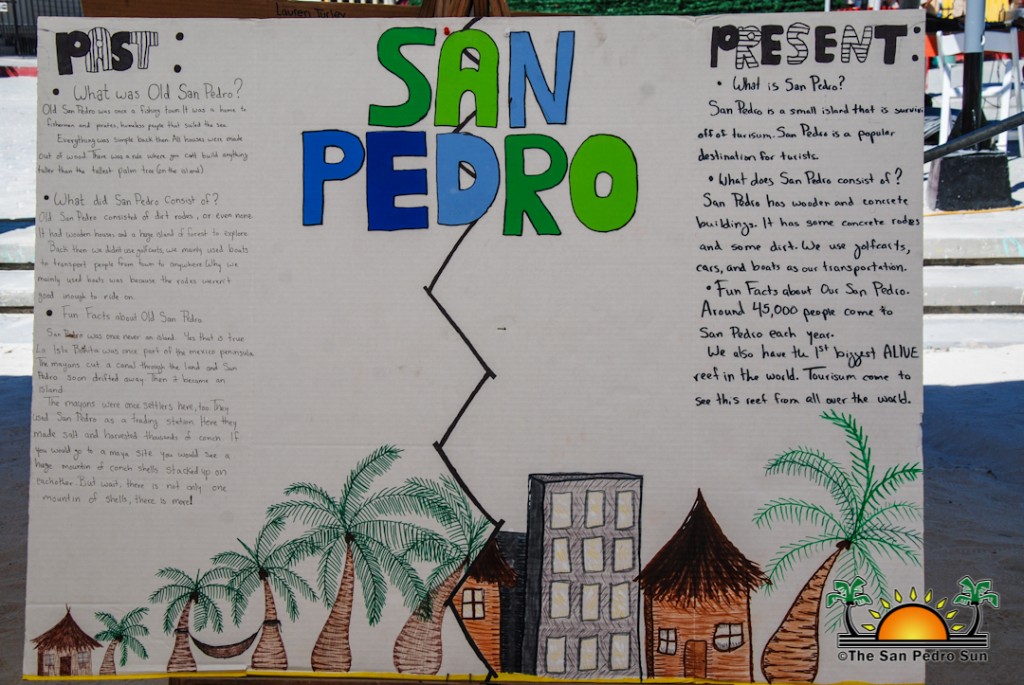 Lauren Turley
PAST:
SAN
PEDRO
PRESENT:
• What was Old San Pedro?
Old San Pedro was once a fishing town. It was a home to
fisherman and pirates, homeless people that sailed the sea.
Everything was simple back then. All houses were made
out of wood. There was a rule where you can't build anything
taller than the tallest palm tree (on the island)
• What did San Pedro Consist of?
Old San Pedro consisted of dirt rodes, or even none.
It had wooden houses and a huge island of forrest to explore.
Back then we didn't use golfcarts, we mainly used boats
to transport people from town to anywhere. Why we
mainly used boats was because the rodes weren't
good enough to ride on.
• Fun Facts about Old San Pedro
San Pedro was once never an island. Yes that is true.
La Isla Bonita was once part of the mexico peninsula.
The mayans cut a canal through the land and San
Pedro soon drifted away. Then it became an
island.
The mayans were once settlers here, too. They
used San Pedro as a trading station. Here they
made salt and harvested thousands of conch. If
you would go to a maya site you would see a
huge mountin of conch shells stacked up on
eachother. But wait, there is not only one
mountin of shells, there is more!
• What is San Pedro?
San Pedro is a small island that is surviving
off of turisum. San Pedro is a popular
destination for turists.
• What does San Pedro consist of?
San Pedro has wooden and concrete
buildings. It has some concrete rodes
and some dirt. We use golfcarts,
cars, and boats as our transportation.
• Fun Facts about Our San Pedro.
Around 45,000 people come to
San Pedro each year.
We also have the 1st biggest ALIVE
reef in the world. Tourisum come to
see this reef from all over the world.
©The San Pedro Sun